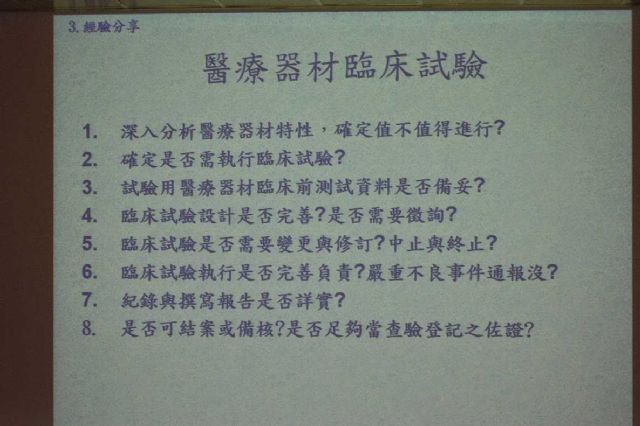 3. 經驗分享
醫療器材臨床試驗
1. 深入分析醫療器材特性，確定值不值得進行?
2. 確定是否需執行臨床試驗?
3. 試驗用醫療器材臨床前測試資料是否備妥?
4. 臨床試驗設計是否完善?是否需要徵詢?
5. 臨床試驗是否需要變更與修訂?中止與終止?
6. 臨床試驗執行是否完善負責?嚴重不良事件通報沒?
7. 紀錄與撰寫報告是否詳實?
8. 是否可結案或備核?是否足夠當查驗登記之佐證?